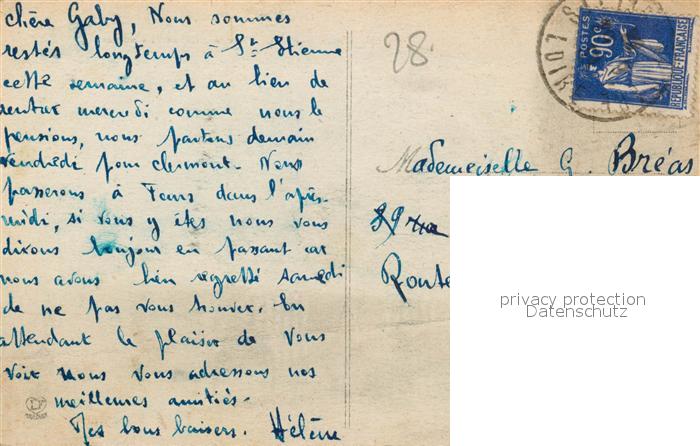 chère Gaby, Nous sommes
restés longtemps à St Etienne
cette semaine, et au lieu de
rentrer mercredi comme nous le
pensions, nous partons demain
vendredi pour clermont. Nous
passerons à dans l'après-
midi, si vous y êtes nous vous
dirons bonjour en passant car
nous avons bien regretté samedi
de ne pas vous trouver. En
attendant le plaisir de vous
voir nous vous adressons nos
meilleures amitiés.
Mes bons baisers. Hélène
28.
POSTES
90c
REPUBLIQUE FRANÇAISE
LOIRE
Mademoiselle G. Bréas
39 rue
Route
privacy protection
Datenschutz